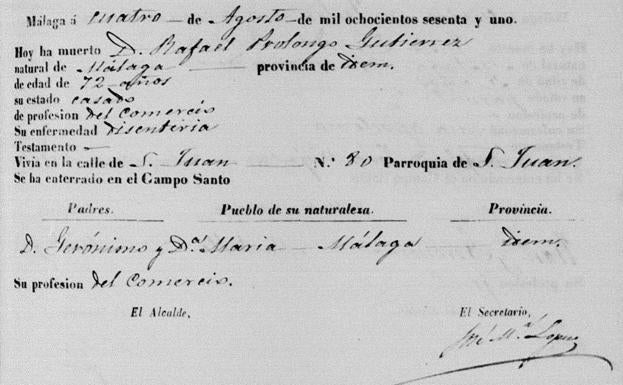 Málaga á cuatro de Agosto de mil ochocientos sesenta y uno.
Hoy ha muerto D. Rafael Prolongo Gutierrez
natural de Málaga — provincia de idem.
de edad de 72 años
su estado casado
de profesion del Comercio
Su enfermedad disenteria
Testamento —
Vivia en la calle de S. Juan — N.º 80 Parroquia de S. Juan.
Se ha enterrado en el Campo Santo
Padres. Pueblo de su naturaleza. Provincia.
D. Gerónimo y D.ª Maria — Málaga idem.
Su profesion del Comercio.
El Alcalde, El Secretario,
José M.ª Lopez